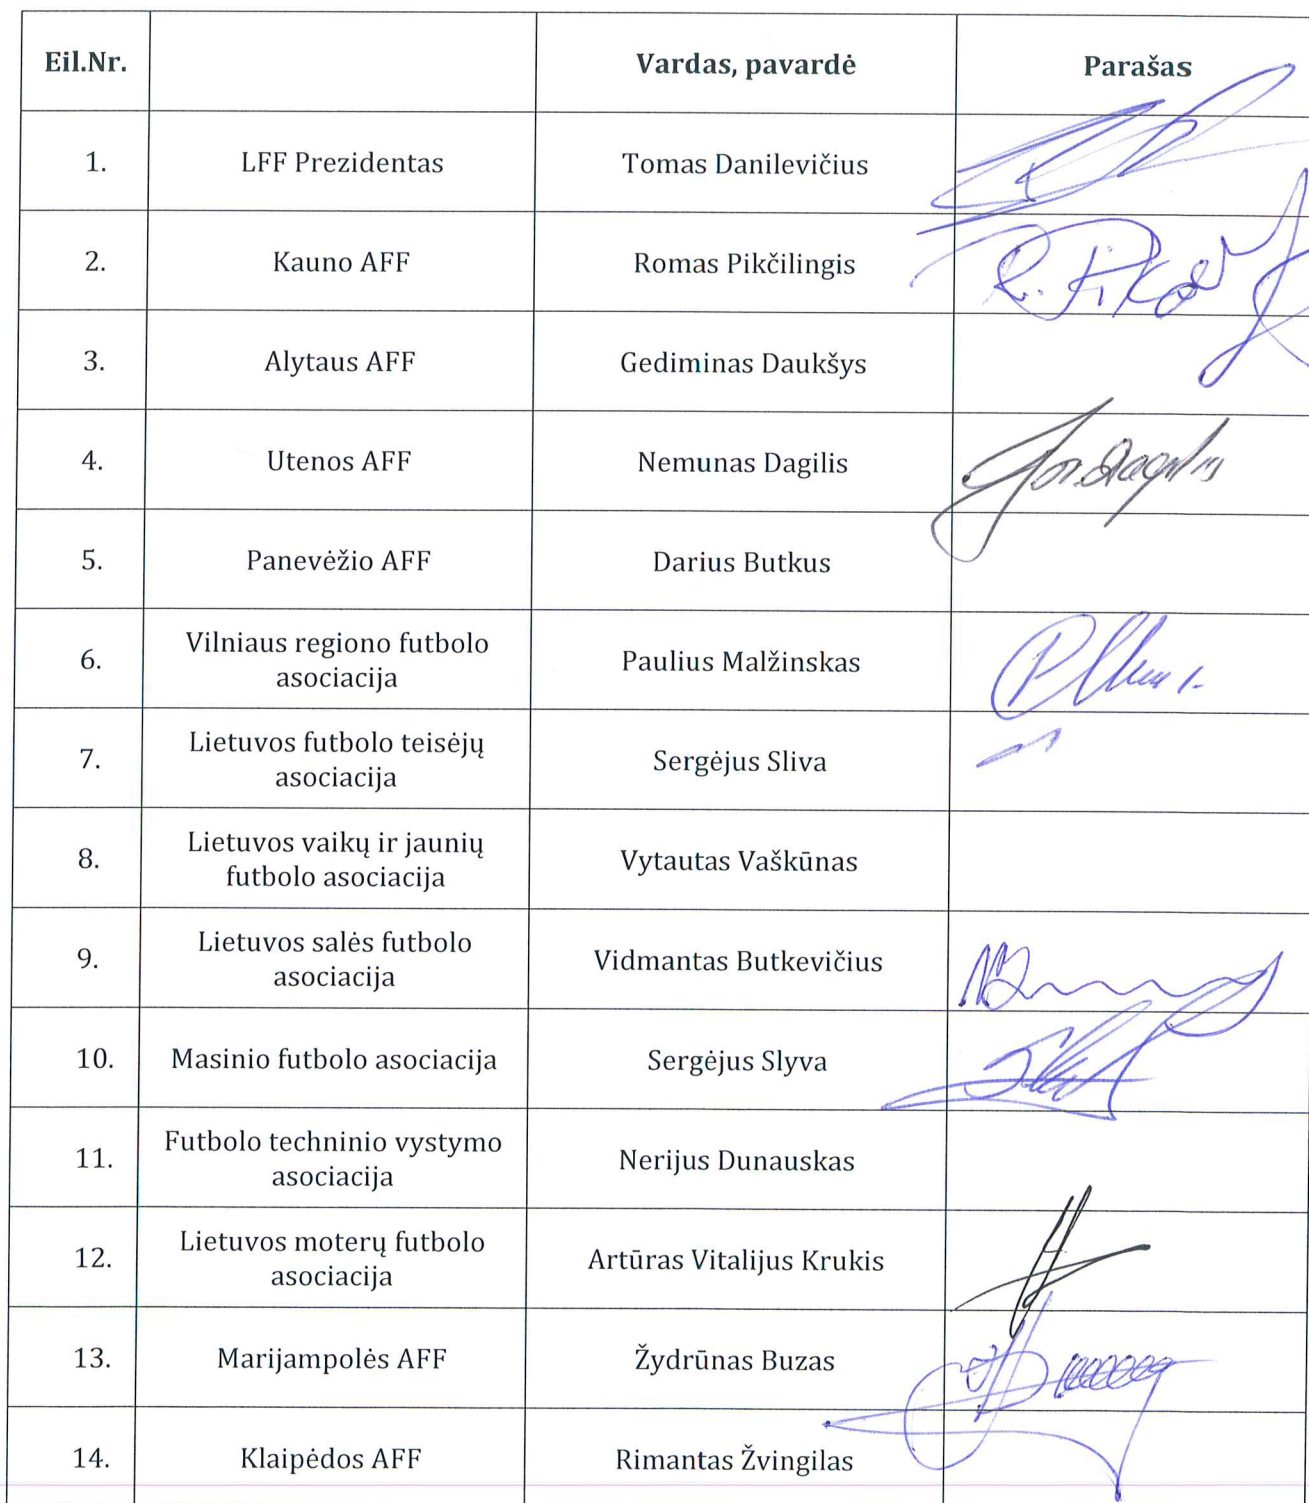 Eil.Nr. Vardas, pavardė Parašas
1. LFF Prezidentas Tomas Danilevičius
2. Kauno AFF Romas Pikčilingis
3. Alytaus AFF Gediminas Daukšys
4. Utenos AFF Nemunas Dagilis
5. Panevėžio AFF Darius Butkus
6. Vilniaus regiono futbolo
asociacija Paulius Malžinskas
7. Lietuvos futbolo teisėjų
asociacija Sergėjus Sliva
8. Lietuvos vaikų ir jaunių
futbolo asociacija Vytautas Vaškūnas
9. Lietuvos salės futbolo
asociacija Vidmantas Butkevičius
10. Masinio futbolo asociacija Sergėjus Slyva
11. Futbolo techninio vystymo
asociacija Nerijus Dunauskas
12. Lietuvos moterų futbolo
asociacija Artūras Vitalijus Krukis
13. Marijampolės AFF Žydrūnas Buzas
14. Klaipėdos AFF Rimantas Žvingilas